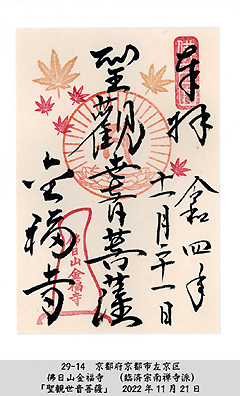 奉拝
令和四年
十一月二十一日
聖觀世音菩薩
金福寺
佛日山
金福寺
29-14　京都府京都市左京区
佛日山金福寺　（臨済宗南禅寺派）
「聖観世音菩薩」　2022年11月21日